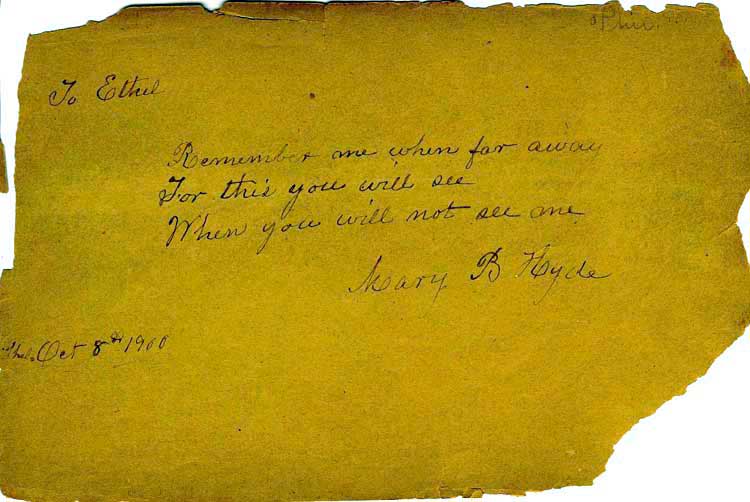 To Ethel
Remember me when far away
For this you will see
When you will not see me
Mary B Hyde
Oct 8th 1900